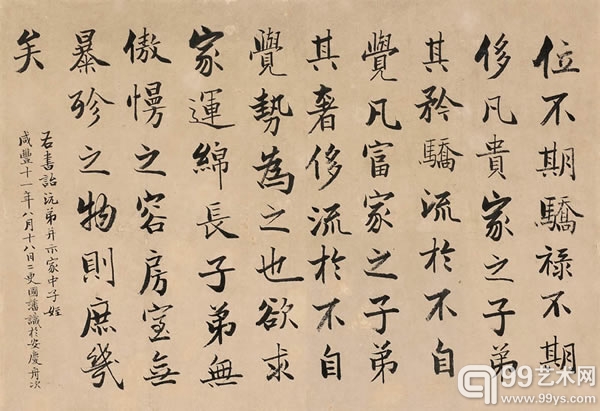 位不期驕禄不期
侈凡貴家之子弟
其矜驕流於不自
覺凡富家之子弟
其奢侈流於不自
覺勢為之也欲求
家運綿長子弟無
傲慢之容房室無
暴殄之物則庶幾
矣
右書詒沅弟并示家中子姪
咸豐十一年八月十八日二更國藩識於安慶舟次
99艺术网
www.99ys.com